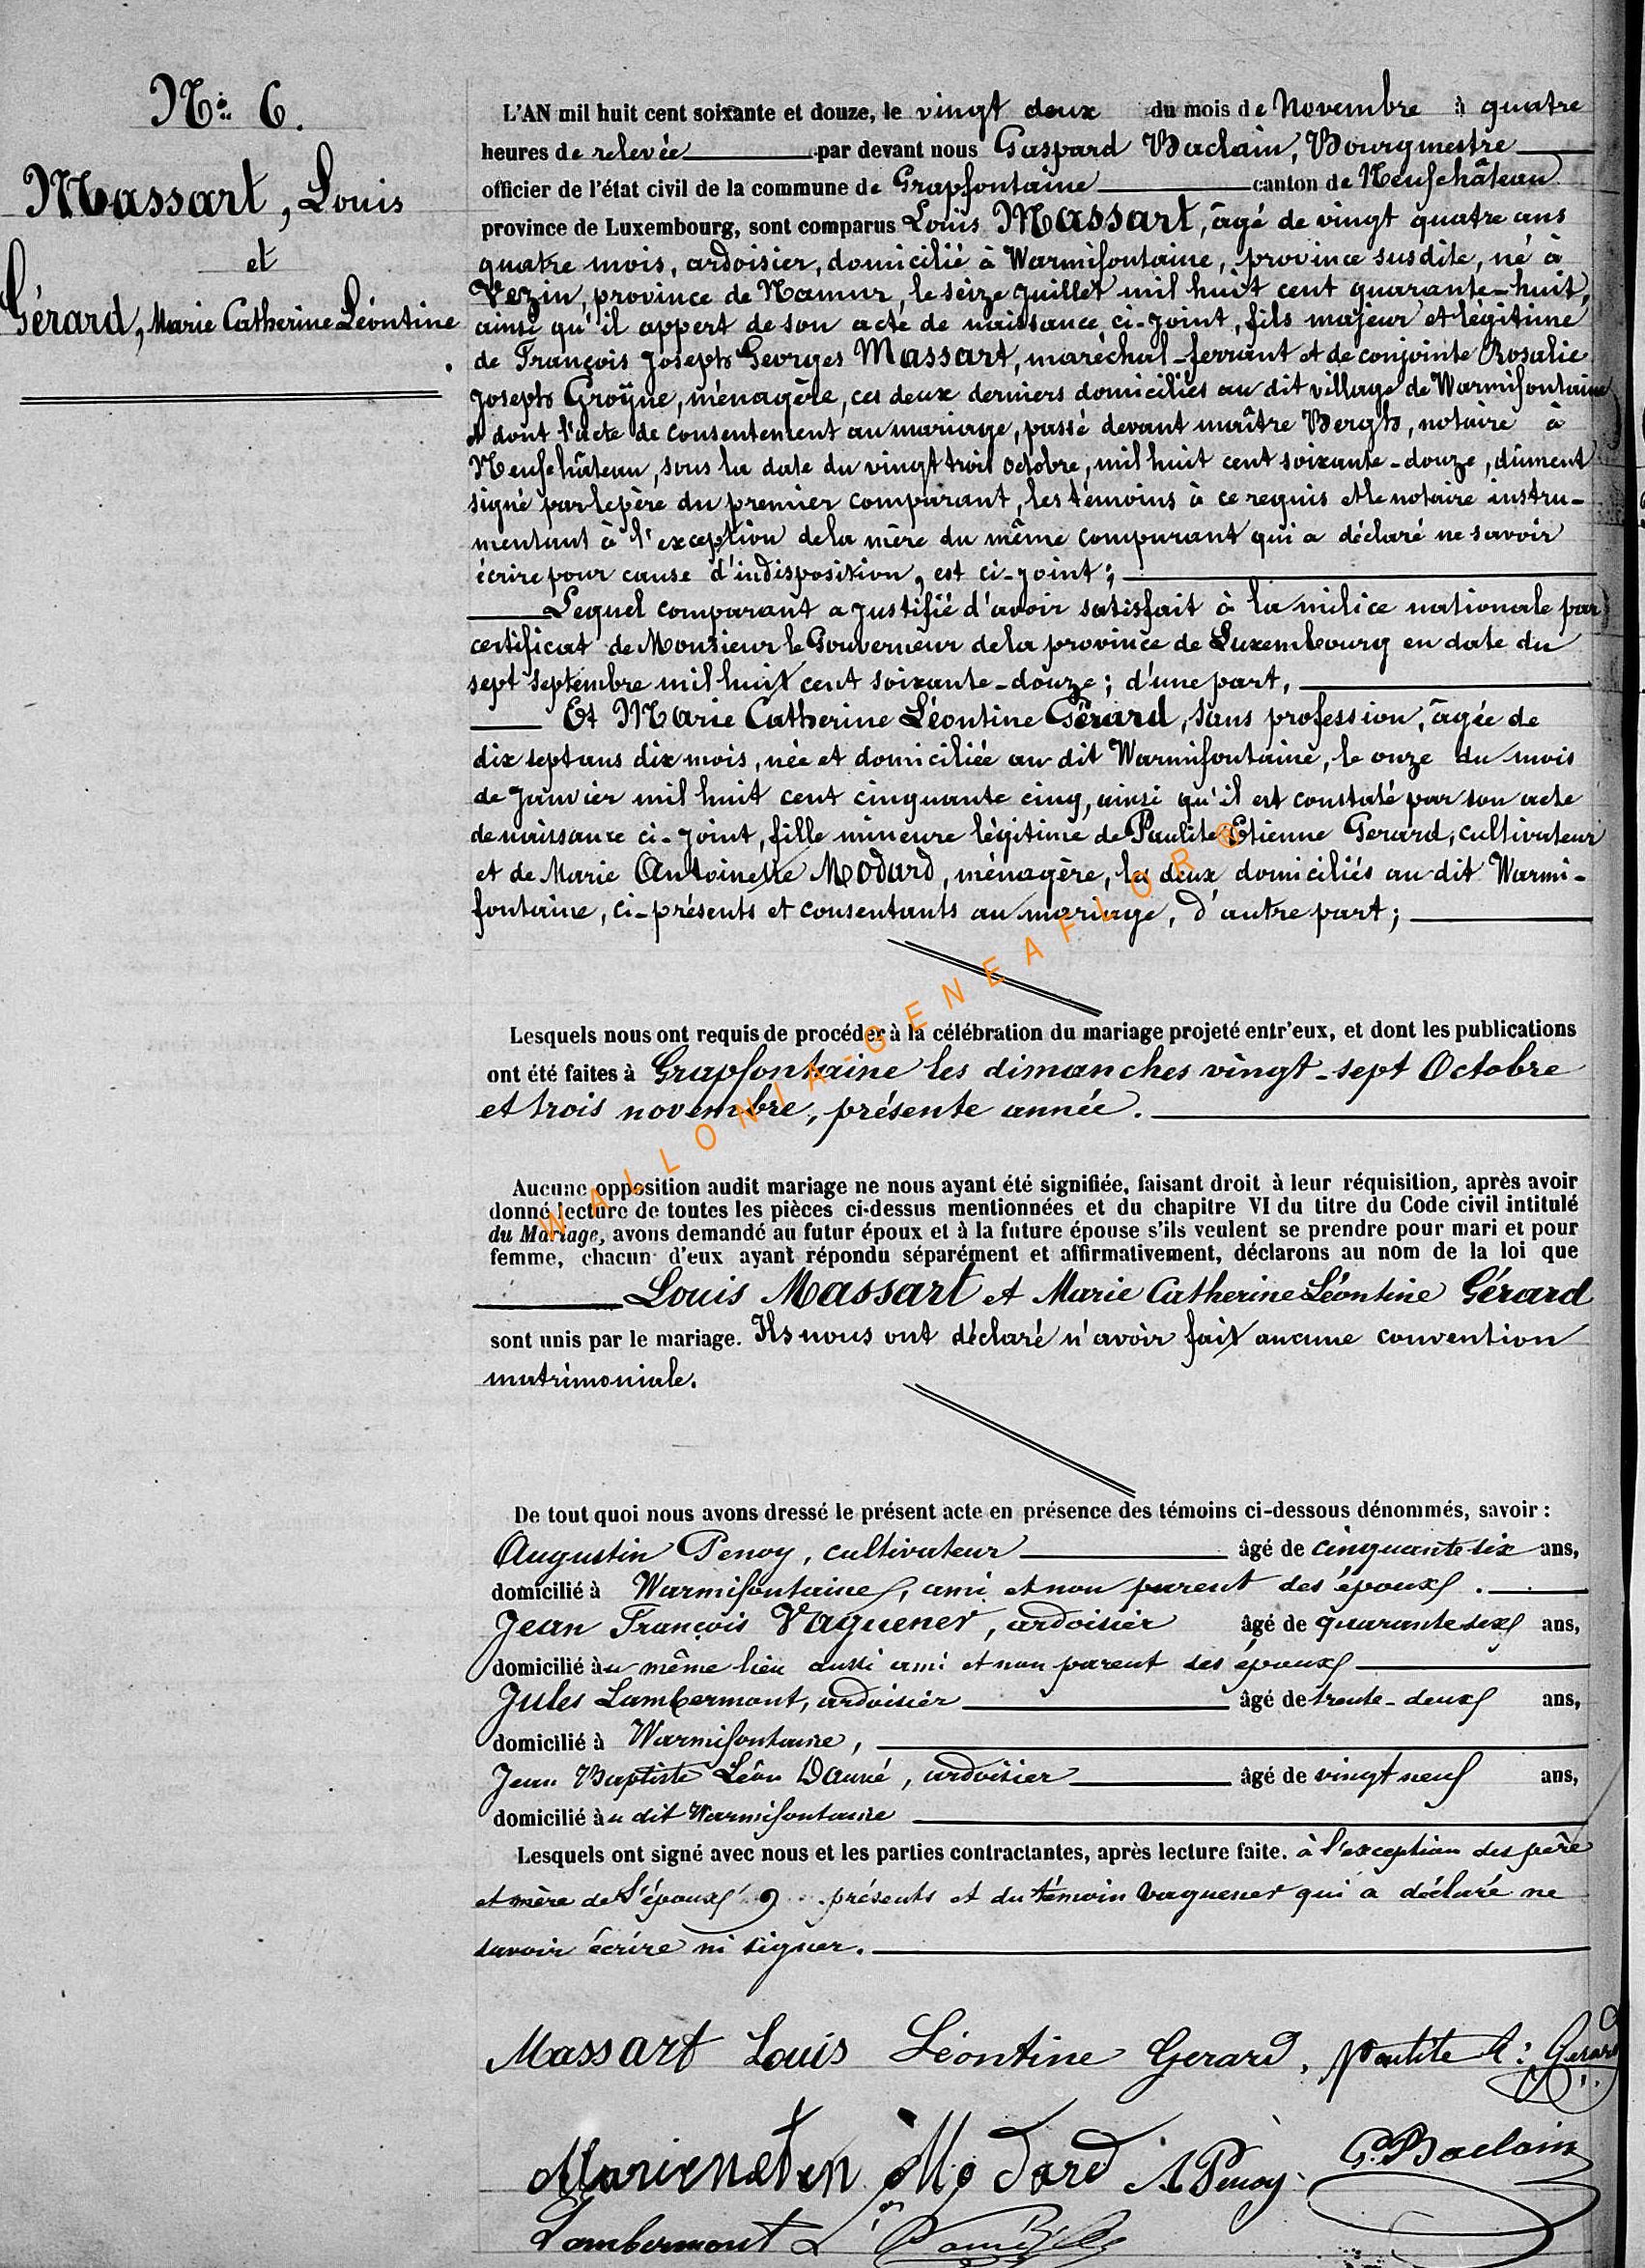 N° 6.
Massart, Louis
et
Gérard, Marie Catherine Léontine
L'AN mil huit cent soixante et douze, le vingt deux du mois de Novembre à quatre
heures de relevée par devant nous Gaspard Baclain, Bourgmestre
officier de l'état civil de la commune de Grapfontaine canton de Neufchâteau
province de Luxembourg, sont comparus Louis Massart, âgé de vingt quatre ans
quatre mois, ardoisier, domicilié à Warmifontaine, province susdite, né à
Vezin, province de Namur, le seize Juillet mil huit cent quarante-huit,
ainsi qu'il appert de son acte de naissance ci-joint, fils majeur et légitime
de François Joseph Georges Massart, maréchal-ferrant et de conjointe Rosalie
Joseph Groÿne, ménagère, ces deux derniers domiciliés au dit village de Warmifontaine
et dont l'acte de consentement au mariage, passé devant maître Bergh, notaire à
Neufchâteau, sous la date du vingt trois octobre, mil huit cent soixante-douze, dûment
signé par le père du premier comparant, les témoins à ce requis et le notaire instru-
mentant à l'exception de la mère du même comparant qui a déclaré ne savoir
écrire pour cause d'indisposition, est ci-joint;
Lequel comparant a justifié d'avoir satisfait à la milice nationale par
certificat de Monsieur le Gouverneur de la province de Luxembourg en date du
sept septembre mil huit cent soixante-douze; d'une part,
Et Marie Catherine Léontine Gérard, sans profession, âgée de
dix sept ans dix mois, née et domiciliée au dit Warmifontaine, le onze du mois
de Janvier mil huit cent cinquante cinq, ainsi qu'il est constaté par son acte
de naissance ci-joint, fille mineure légitime de Paulite Etienne Gerard, cultivateur
et de Marie Antoinette Modard, ménagère, les deux domiciliés au dit Warmi-
fontaine, ci-présents et consentants au mariage, d'autre part;
Lesquels nous ont requis de procéder à la célébration du mariage projeté entr'eux, et dont les publications
ont été faites à Grapfontaine les dimanches vingt-sept Octobre
et trois novembre, présente année.
WALLONIA-GENEAFLOR®
Aucune opposition audit mariage ne nous ayant été signifiée, faisant droit à leur réquisition, après avoir
donné lecture de toutes les pièces ci-dessus mentionnées et du chapitre VI du titre du Code civil intitulé
du Mariage, avons demandé au futur époux et à la future épouse s'ils veulent se prendre pour mari et pour
femme, chacun d'eux ayant répondu séparément et affirmativement, déclarons au nom de la loi que
Louis Massart et Marie Catherine Léontine Gérard
sont unis par le mariage. Ils nous ont déclaré n'avoir fait aucune convention
matrimoniale.
De tout quoi nous avons dressé le présent acte en présence des témoins ci-dessous dénommés, savoir :
Augustin Penoy, cultivateur âgé de cinquante six ans,
domicilié à Warmifontaine, ami et non parent des époux.
Jean François Vaguener, ardoisier âgé de quarante six ans,
domicilié au même lieu aussi ami et non parent des époux
Jules Lambermont, ardoisier âgé de trente-deux ans,
domicilié à Warmifontaine,
Jean Baptiste Léon Dauné, ardoisier âgé de vingt neuf ans,
domicilié au dit Warmifontaine
Lesquels ont signé avec nous et les parties contractantes, après lecture faite. à l'exception des père
et mère de l'époux présents et du témoin Vaguener qui a déclaré ne
savoir écrire ni signer.
Massart Louis Léontine Gerard. Paulite E: Gerard
Modard A Penoy. G. Baclain
Lambermont